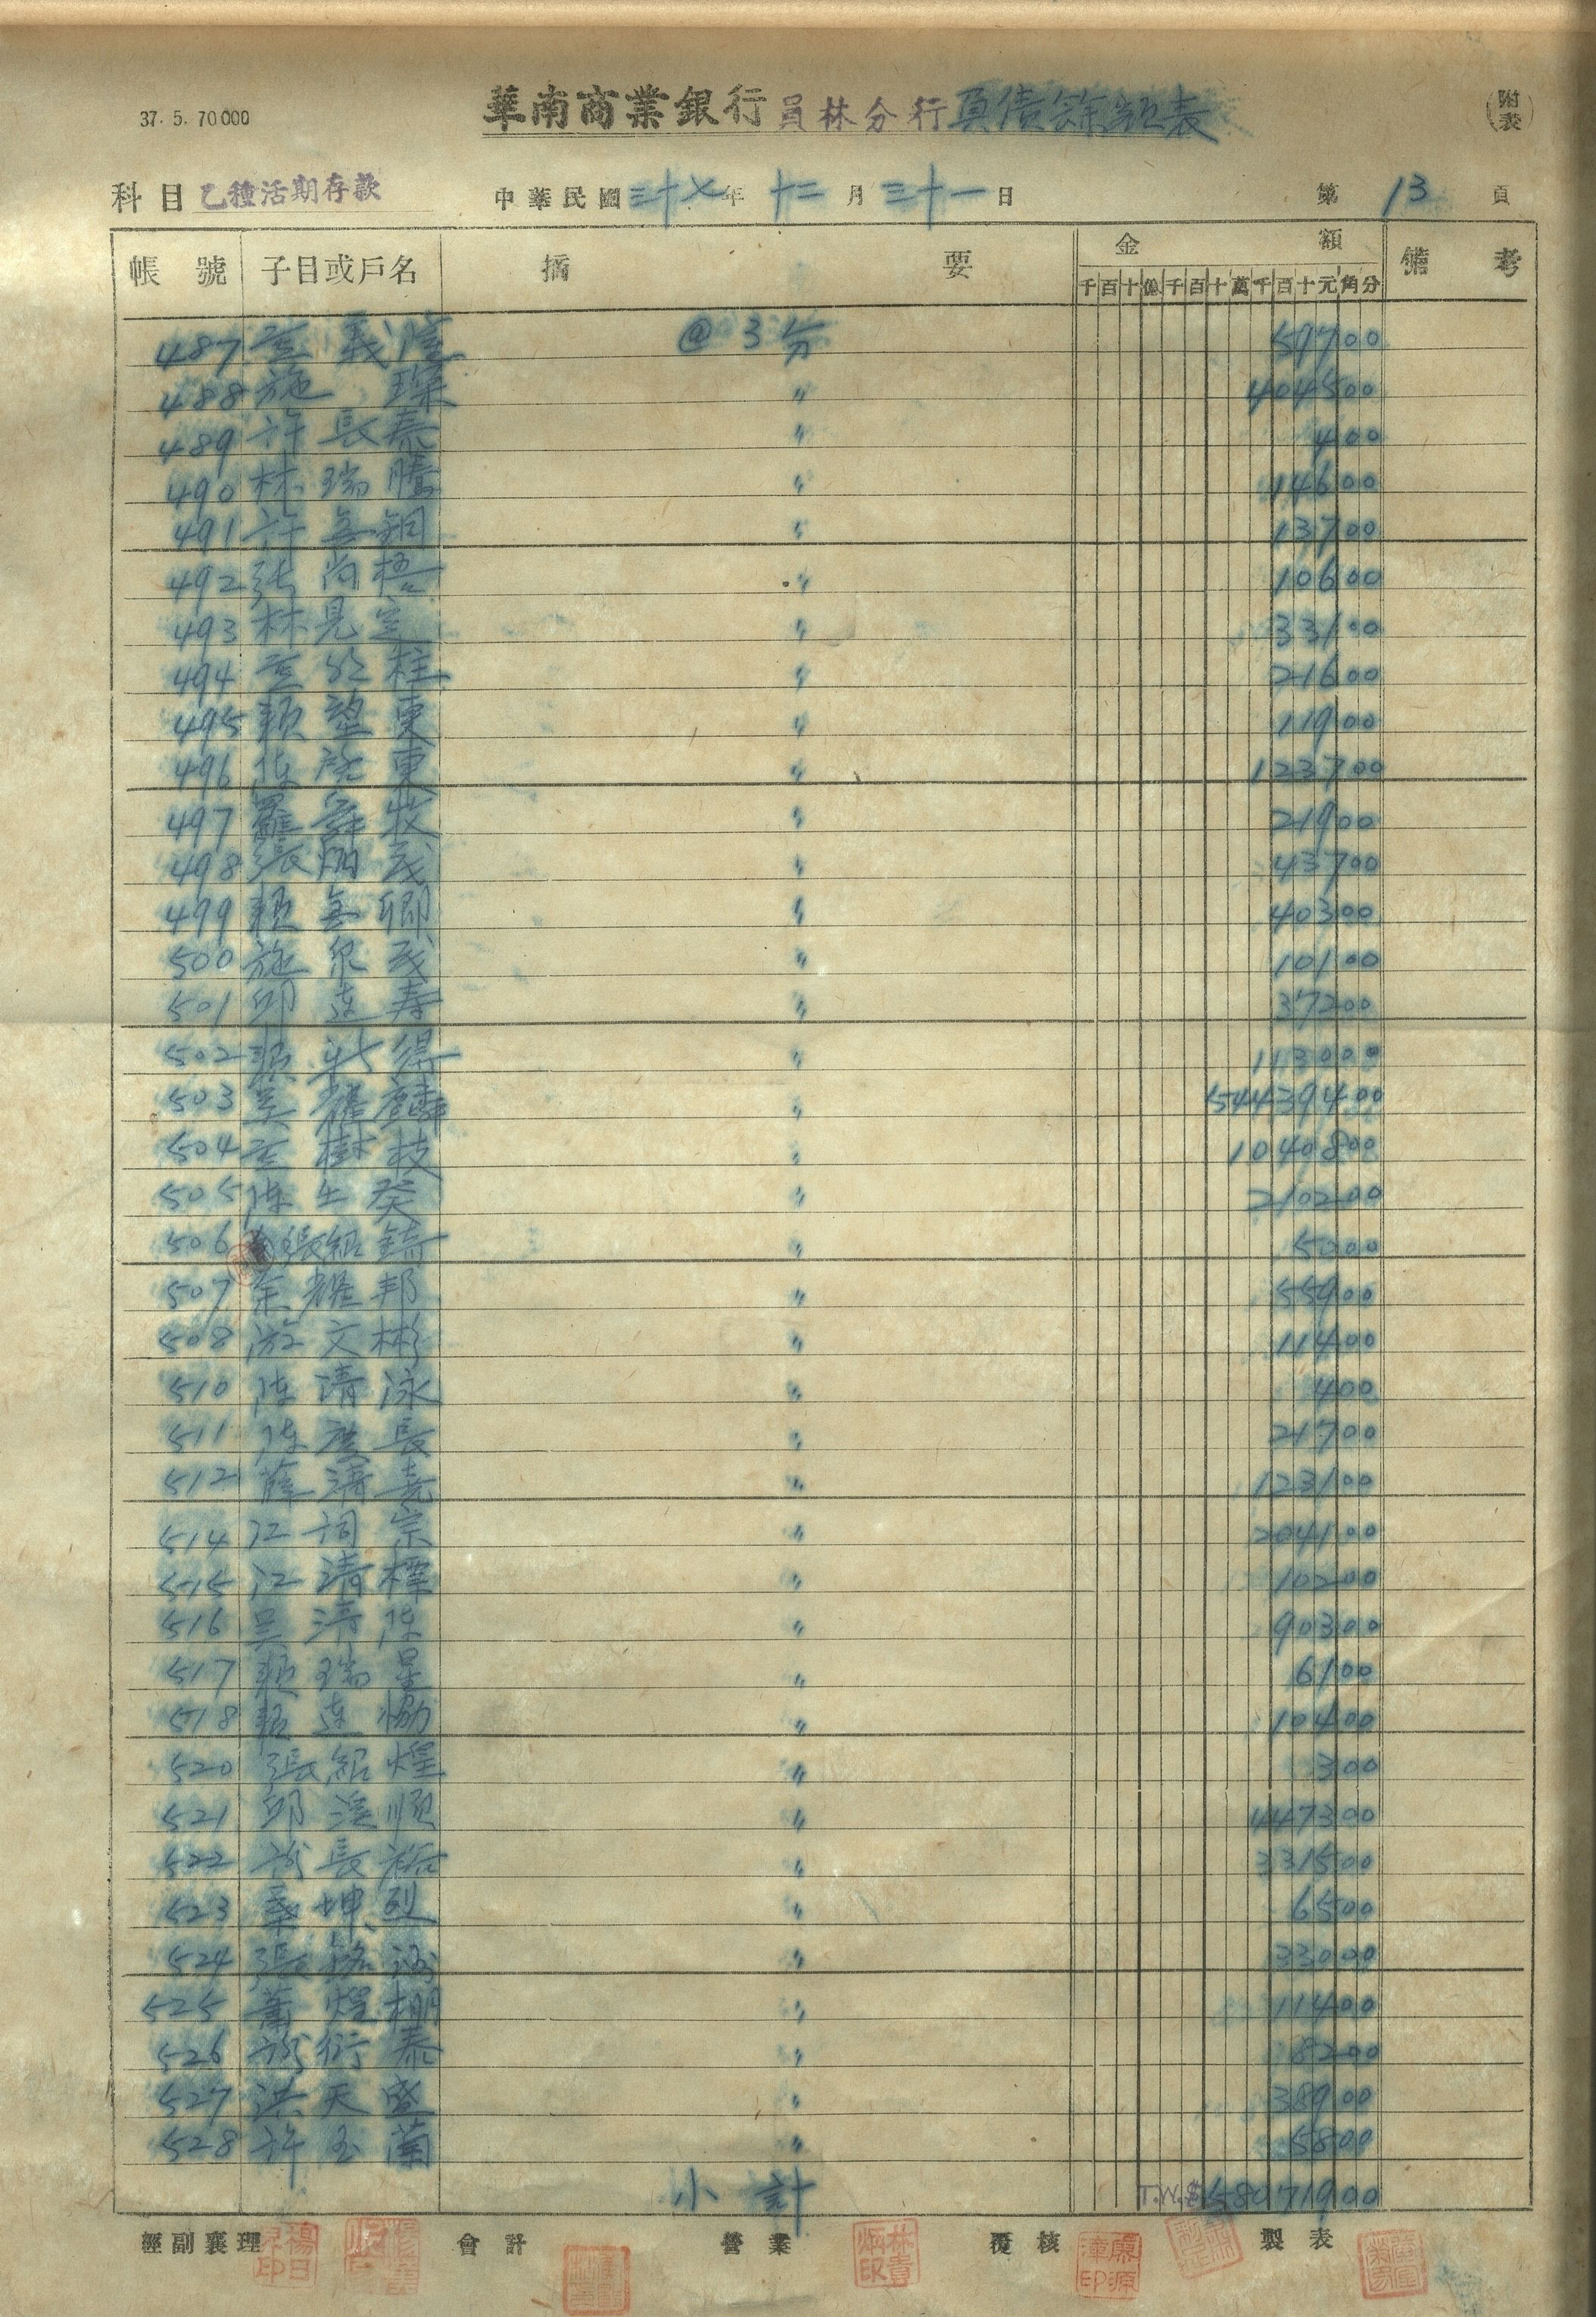 37. 5. 70000
華南商業銀行員林分行負債餘額表
附表
科目 乙種活期存款 中華民國三十七年十二月三十一日 第13頁
帳號 子目或戶名 摘要 金額 備考
千百十億千百十萬千百十元角分
487 義 @ 3分 59700
488 施琛 〃 404500
489 許長泰 〃 400
490 林瑞騰 〃 14600
491 許 〃 13700
492 張尚梧 〃 10600
493 林晃定 〃 33100
494 柱 〃 21600
495 賴望東 〃 11900
496 陳 東 〃 123700
497 羅 牧 〃 21900
498 張炳茂 〃 43700
499 賴 卿 〃 40300
500 施泉茂 〃 10100
501 邱連壽 〃 37200
502 賴 得 〃 113000
503 吳耀麟 〃 54439400
504 樹枝 〃 1040800
505 陳土癸 〃 210200
506 張紹錡 〃 5000
507 余耀邦 〃 55900
508 游文彬 〃 11400
510 陳清泳 〃 400
511 陳慶長 〃 21700
512 薛清 〃 123100
514 江詞宗 〃 204100
515 江清標 〃 10200
516 吳 〃 90300
517 賴瑞星 〃 6100
518 賴連協 〃 10400
520 張紹煌 〃 300
521 邱溪順 〃 447300
522 長裕 〃 331500
523 葉坤烈 〃 6500
524 張 〃 33000
525 蕭煌棚 〃 11400
526 衍泰 〃 8200
527 洪天盛 〃 38900
528 許玉蘭 〃 5800
小計 T.W.$ 58071900
經副襄理 會計 營業 覆核 製表